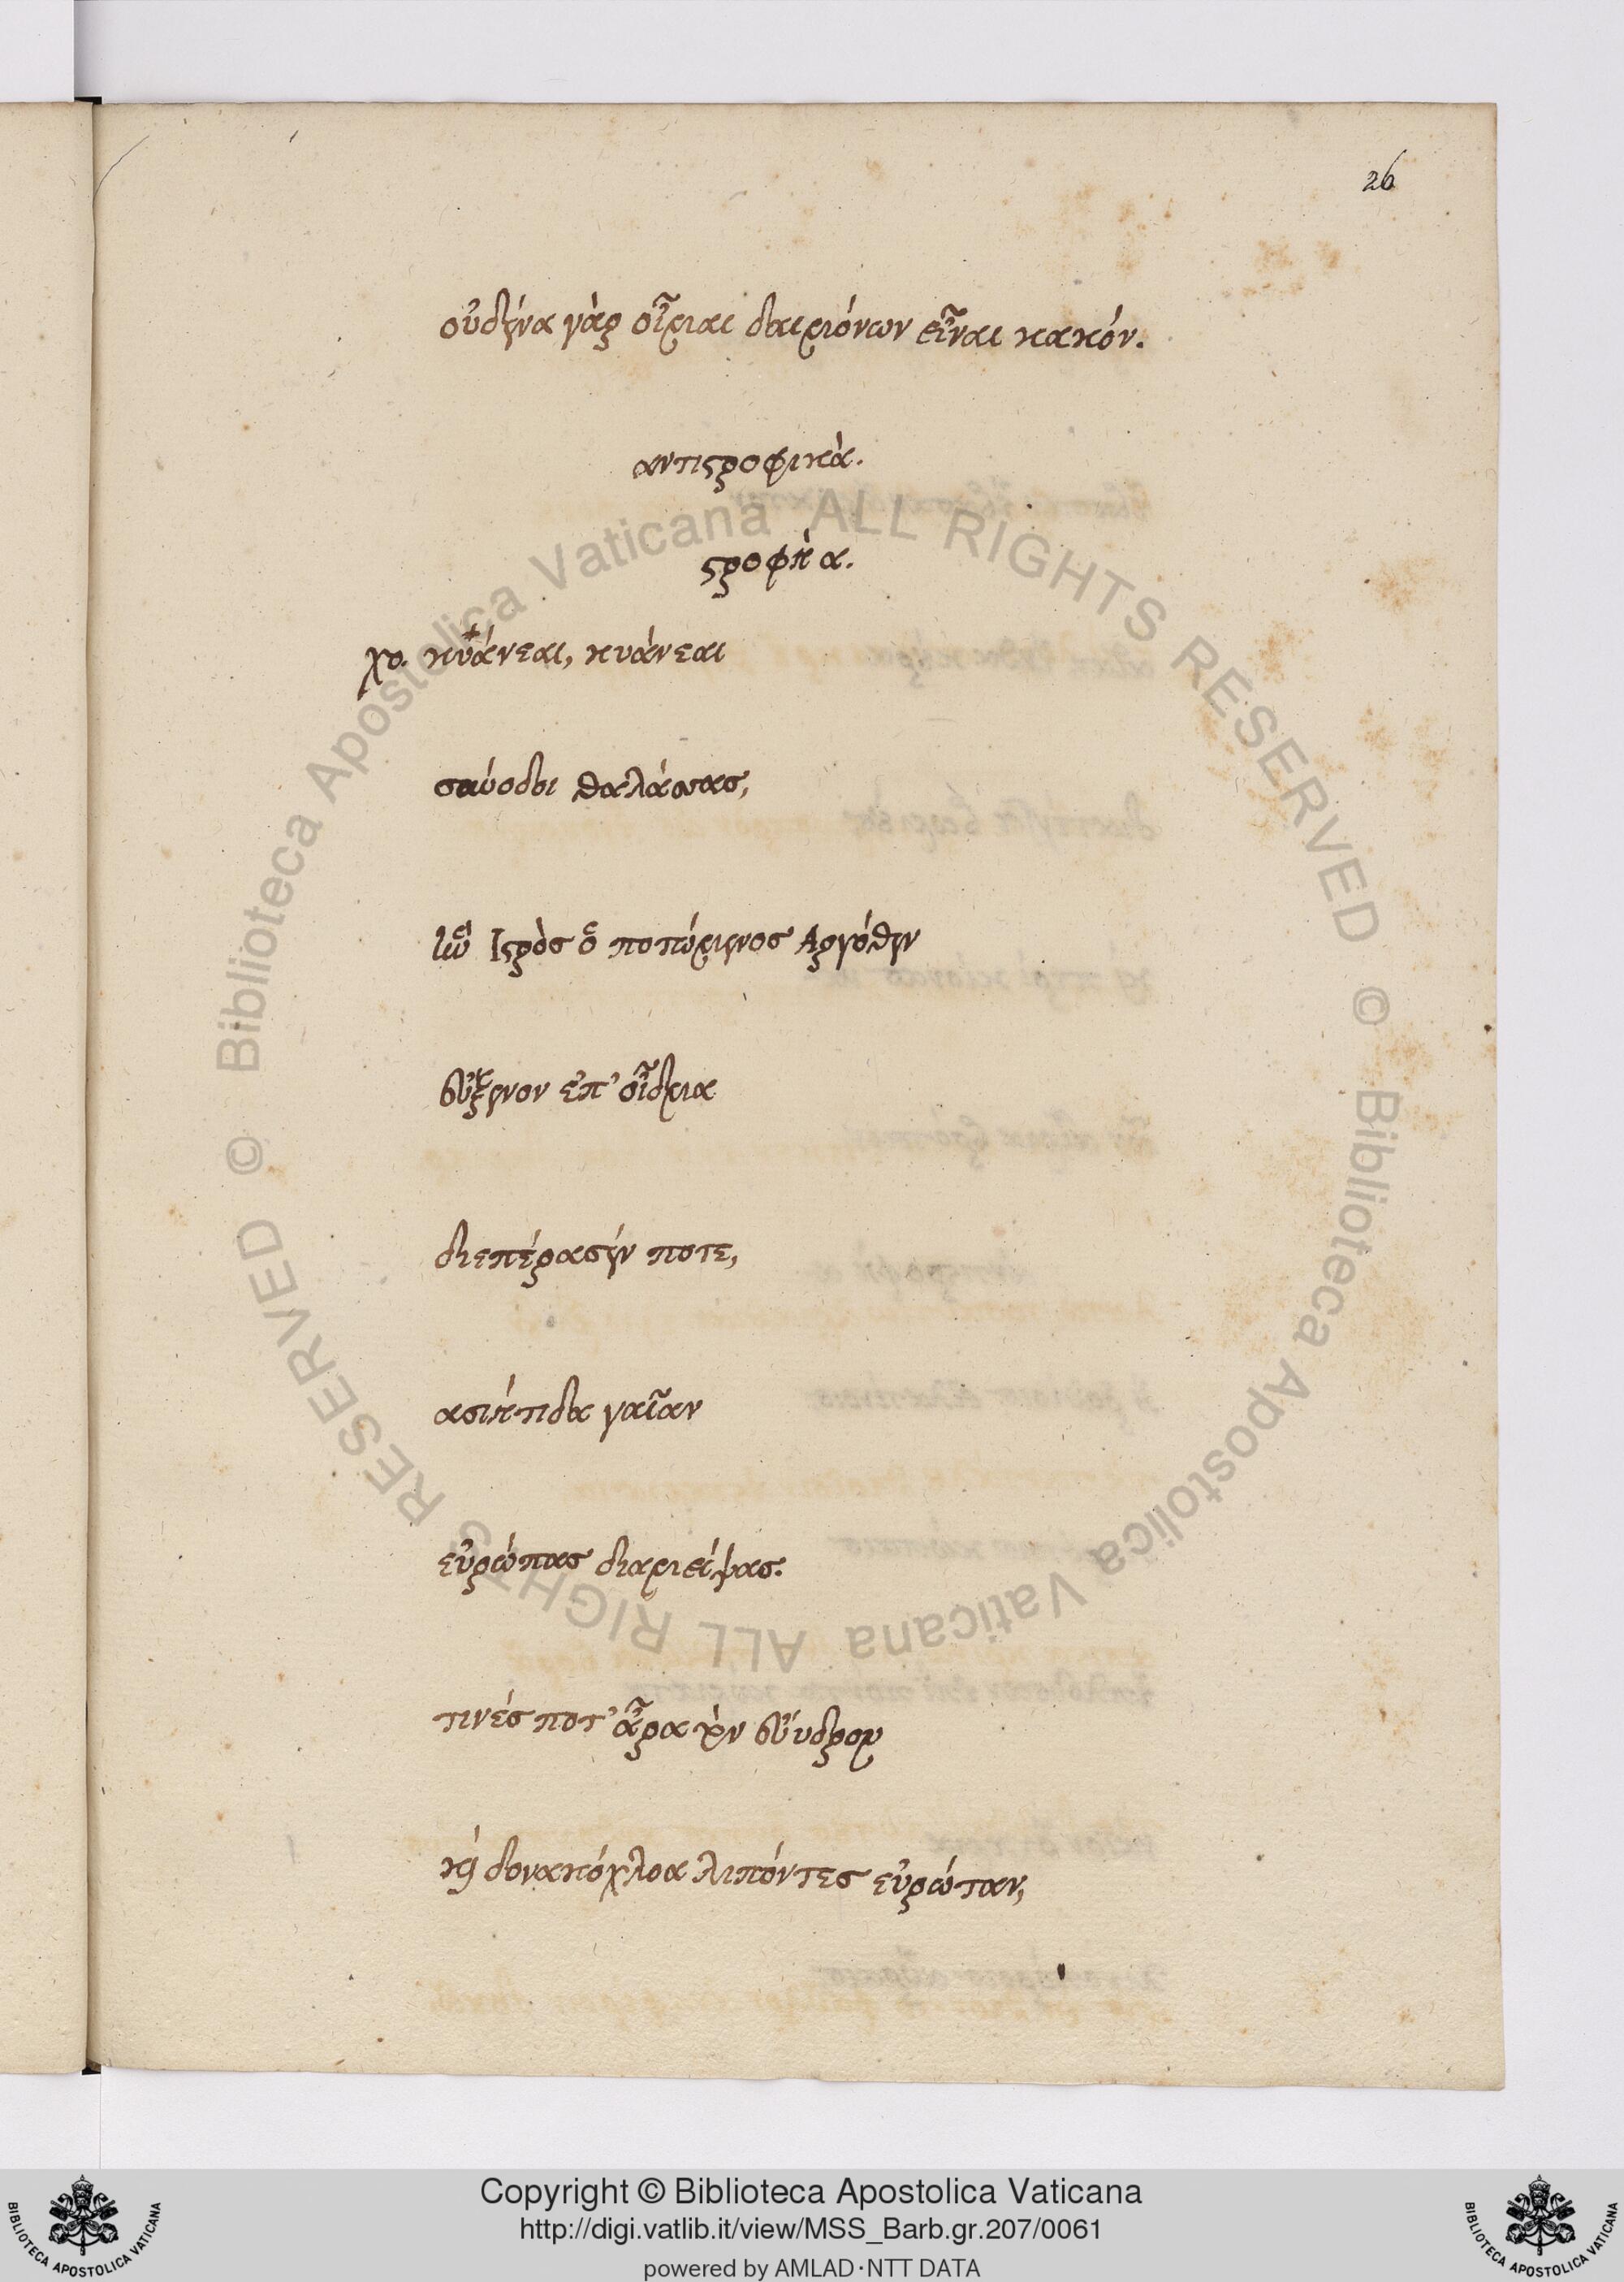 26
οὐδένα γὰρ οἶμαι δαιμόνων εἶναι κακόν.
αντιστροφικὰ.
στροφὴ α.
χο. κυάνεαι, κυάνεαι
σύνοδοι θαλάσσας,
ἵν' Ιστρὸς ὁ ποτώμενος Αργόθεν
ἄξενον ἐπ' οἶδμα
διεπέρασέν ποτε,
ασιήτιδα γαῖαν
εὐρώπας διαμείψας.
τινές ποτ' ἆρα τὸν εὔυδρον
καὶ δονακόχλοα λιπόντες εὐρώταν,
© Biblioteca Apostolica Vaticana ALL RIGHTS RESERVED © Biblioteca Apostolica Vaticana ALL RIGHTS RESERVED
Copyright © Biblioteca Apostolica Vaticana
http://digi.vatlib.it/view/MSS_Barb.gr.207/0061
powered by AMLAD·NTT DATA
BIBLIOTECA APOSTOLICA VATICANA
BIBLIOTECA APOSTOLICA VATICANA